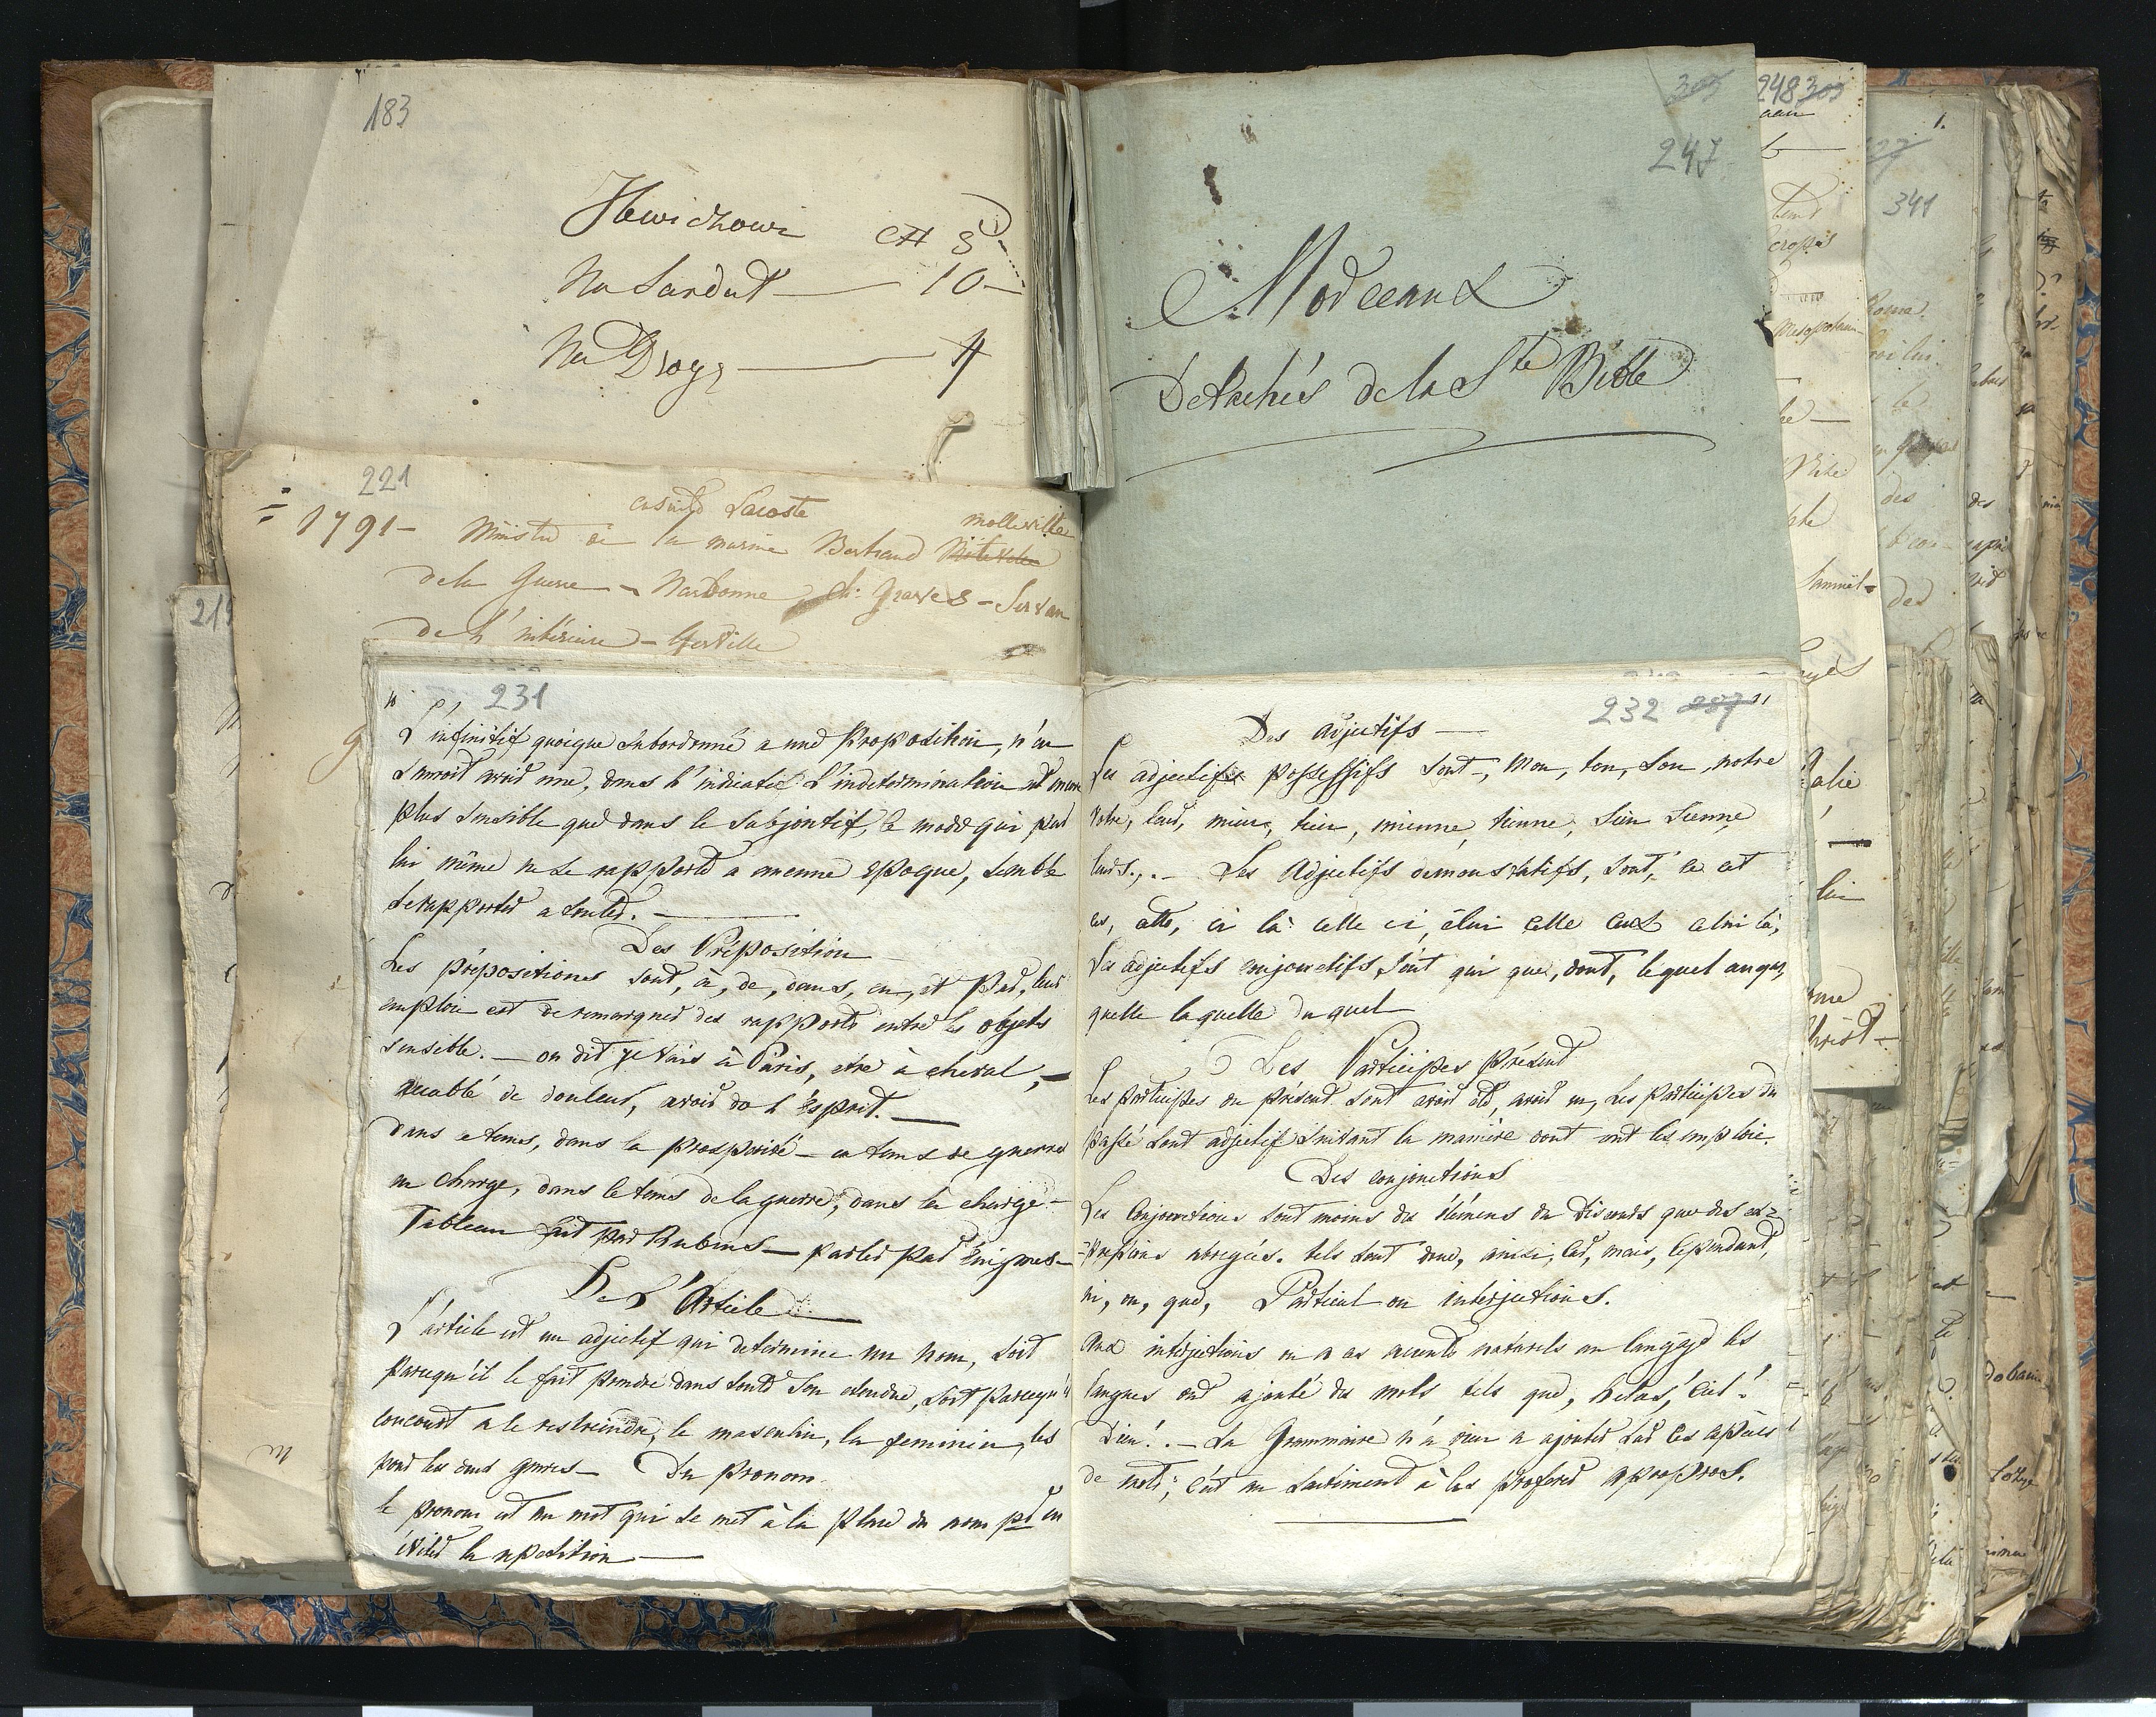 183
Na Sandat — 10 —
Na Drogę — 4
305
247
Morceaux
Detachés de la Ste Bible
221
ensuite Lacoste
= 1791 — Ministre de la marine Bertrand molleville
de la Guerre — Narbonne, de Graves — Servan
de l'intérieure — Gerville
215
10
231
L'infinitif quoique subordonné a une proposition, n'en
sauroit avoir une, dans l'indicatif L'indetermination est encore
plus sensible que dans le subjontif, le mode qui par
lui même ne se rapporte a aucune epoque, semble
se rapporter a toutes. —
Des Préposition
Les prépositiones sont, à, de, dans, en, et Par, leur
emploie est de remarquer des rapports entre les objets
sensible. — on dit je vais à Paris, etre à cheval, —
accablé de douleur, avoir de l'Esprit. —
dans ce tems, dans la prosperité — en tems de guerre
en charge, dans le tems de la guerre, dans la charge —
Tableau fait par Rubens — parler par Enigmes —
De L'Article
L'article est un adjectif qui determine un nom, soit
parcequ'il le fait prendre dans toute son etendue, soit parcequ'il
concourt a le restreindre, le masculin, la feminin, les
pour les deux genres — Du pronom
le pronom est un mot qui se met à la place du nom pr en
éviter la repetition —
232 287 11
Des adjectifs —
Les adjectifs possessifs sont, mon, ton, son, notre
votre, leur, mien, tien, mienne tienne, sien sienne
leurs., . — Les Adjectifs demonstratifs, sont, ce cet
ces, cette, ci là celle ci, celui celle ceux celui là,
Les adjectifs conjonctifs sont qui que, dont, lequel auquel
quelle laquelle duquel
Les Participes présent
Les participes du présent sont avoir été, avoir eu, Les participes du
passé sont adjectif suivant la manière dont ont les emploie.
Des conjonctions
Les Conjonctions sont moins des élémens du Discours que des ex=
=pressions abregées. tels sont donc, ainsi, car, mais, cependant,
ni, ou, que, Particul ou interjections.
Aux interjections ou a ces accents naturels au langage les
langues ont ajouté des mots tels que, helas, Ciel!
Dieu! . — La Grammaire n'a rien a ajouter sur ces especes
de mots; c'est au sentiment à les proferer apropros.
248 305
Mesopotamie
Samuël
Christ —
1.
341
Rome
des
des